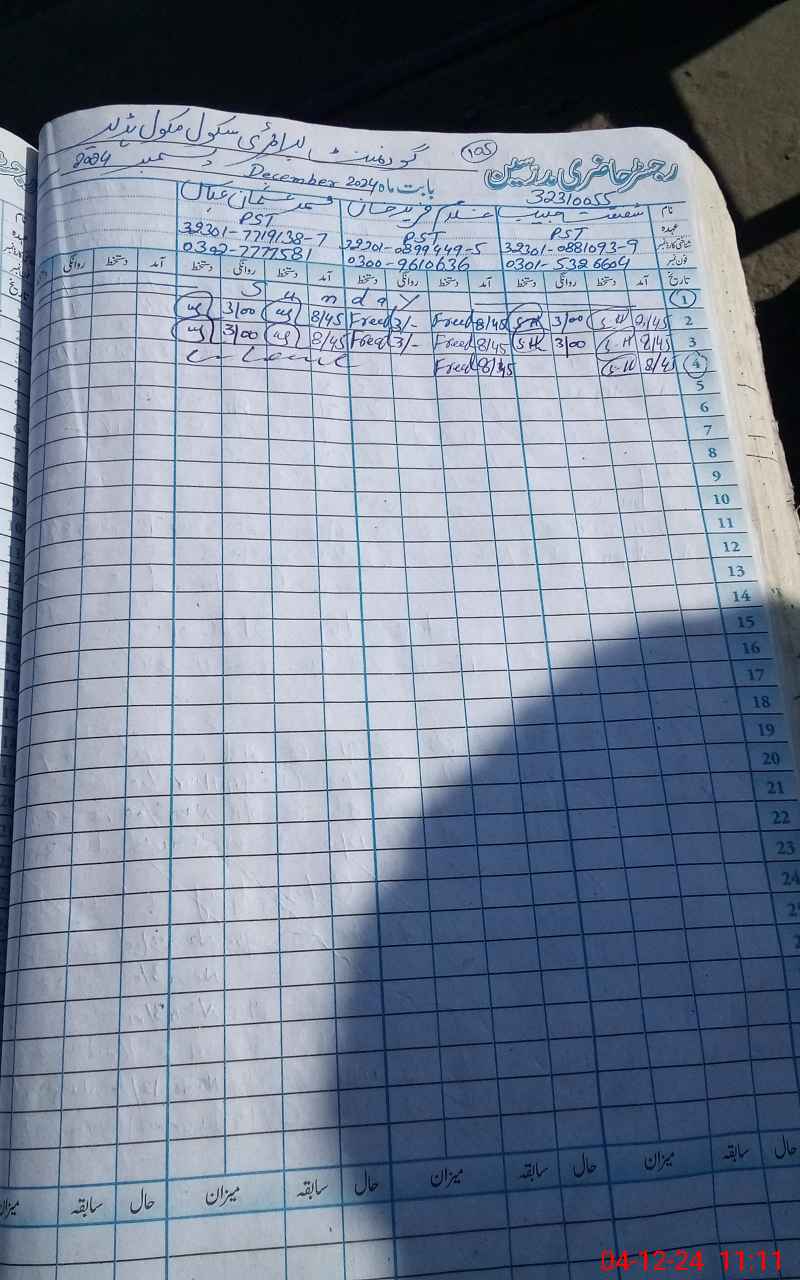 گورنمنٹ پرائمری سکول
105
رجسٹر حاضری مدرسین
دسمبر 2024
بابت ماہ December 2024
32310055
نام شفقت حبیب غلام فرید خان محمد عثمان
عہدہ PST PST PST
شناختی کارڈ نمبر 32301-0881093-9 32301-0899449-5 32301-7719138-7
فون نمبر 0301-5326604 0300-9610636 0302-7777581
تاریخ آمد دستخط روانگی دستخط آمد دستخط روانگی دستخط آمد دستخط روانگی دستخط آمد دستخط روانگی
1 Sunday
2 8/45 S.H 3/00 SH 8/45 Freed 3/- Freed 8/45 3/00
3 8/45 S.H 3/00 SH 8/45 Freed 3/- Freed 8/45 3/00
4 8/45 S.H 8/45 Freed
5
6
7
8
9
10
11
12
13
14
15
16
17
18
19
20
21
22
23
24
حال سابقہ میزان حال سابقہ میزان حال سابقہ میزان حال سابقہ میزان
04-12-24 11:11